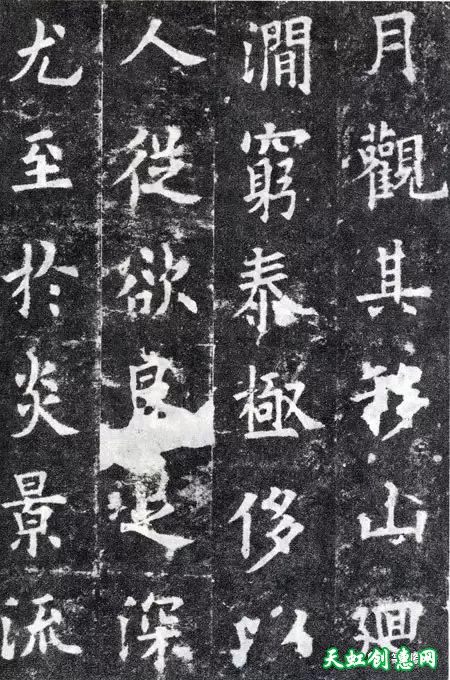 月觀其移山廻
澗窮泰極侈以
人從欲良足深
尤至於炎景流
天虹创惠网